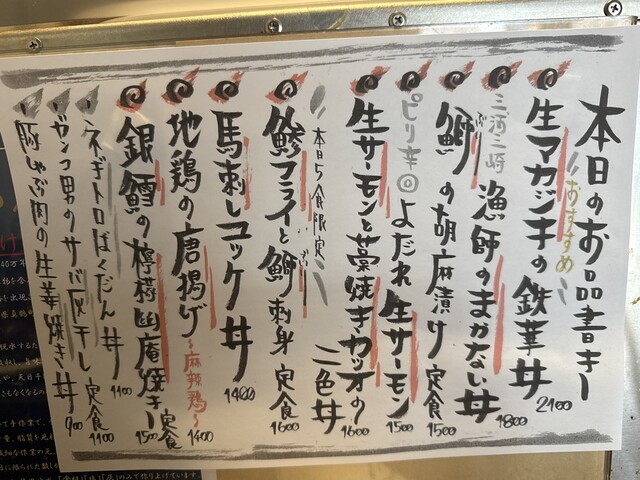 本日のお品書きー
おすすめ
生マカジキの鉄華丼 2100
三河三崎
漁師のまかない丼 1800
鰤の胡麻漬け定食 1500
ぶり
ピリ辛◎
よだれ生サーモン 1500
生サーモンと藁焼きカツオの二色丼 1600
本日5食限定
鯵フライと鰤刺身定食 1600
ぶり
馬刺しユッケ丼 1400
地鶏の唐揚げ〜麻辣鶏〜 1400
銀鱈の檸檬幽庵焼き定食 1500
ネギトロばくだん丼 1400
ガンコ男のサバ灰干し定食 1100
豚しゃぶ肉の生姜焼き丼 900